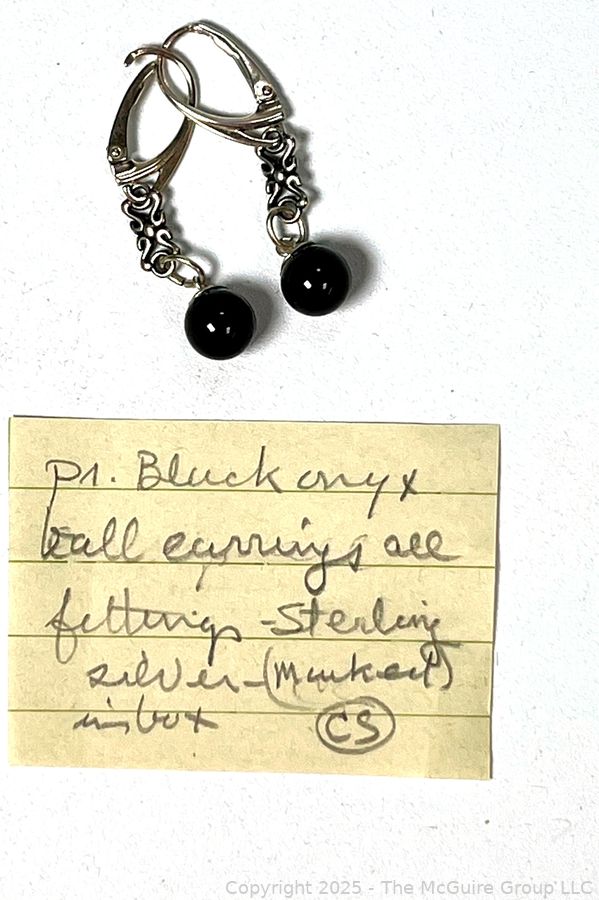 pr. Black onyx
ball earrings all
fittings - Sterling
silver - (marked)
in box CS
Copyright 2025 - The McGuire Group LLC